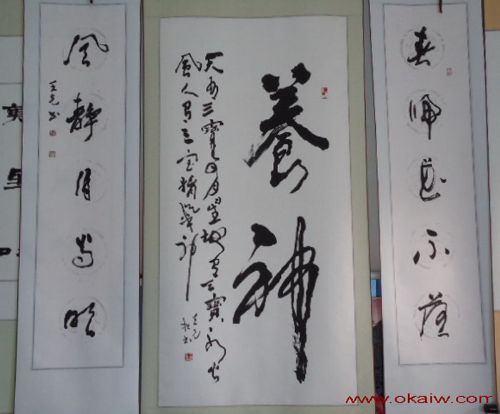 春歸花不落
養神
天有三寶日月星地有三寶水火
風人有三寶精氣神
風靜月常明
www.okaiw.com